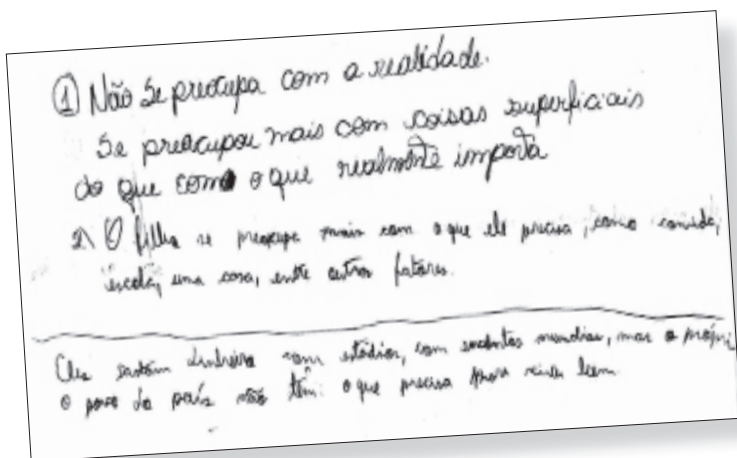 ① Não se preocupa com a realidade.
Se preocupou mais com coisas superficiais
do que com o que realmente importa
2) O filho se preocupa mais com o que ele precisa, como comida,
escola, uma casa, entre outros fatores.
Eles gastam dinheiro com estádios, com mundias, mas o própri
o povo do país não têm o que precisa para viver bem